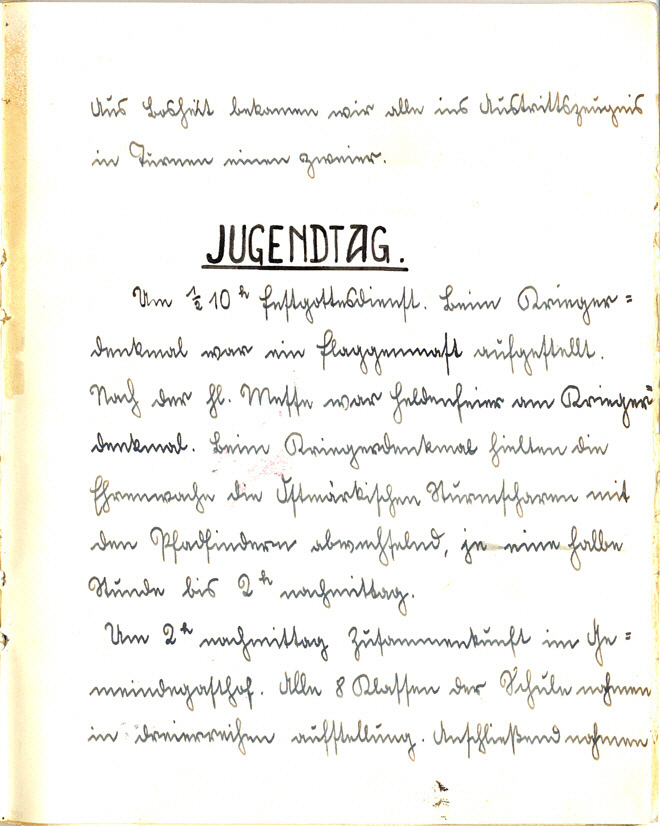 Aus Bosheit bekamen wir alle ins Austrittszeugnis
in Turnen einen zweier.
JUGENDTAG.
Um ½ 10 h Festgottesdienst. Beim Krieger=
denkmal war ein Flaggenmast aufgestellt.
Nach der hl. Messe war Heldenfeier am Krieger=
denkmal. Beim Kriegerdenkmal hielten die
Ehrenwache die Ostmärkischen Sturmscharen mit
den Pfadfindern abwechselnd, je eine halbe
Stunde bis 2 h nachmittag.
Um 2 h nachmittag Zusammenkunft im Ge=
meindegasthof. Alle 8 Klassen der Schule nahmen
in dreierreihen aufstellung. Anschließend nahmen